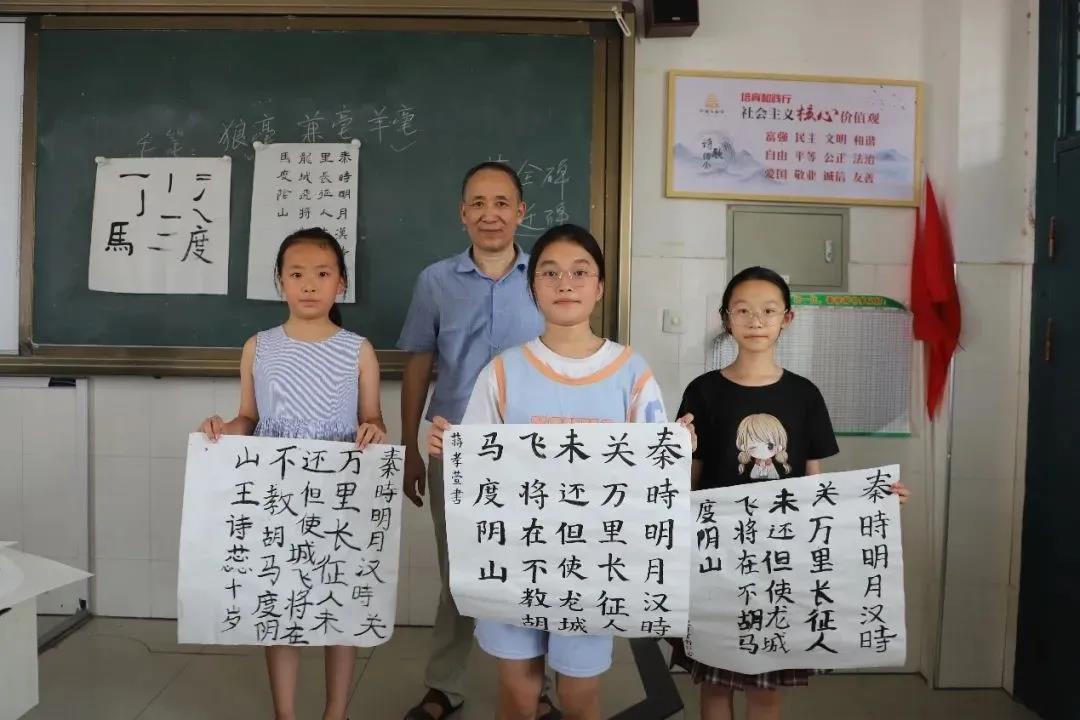 狼毫 兼毫 羊毫
馬 二 度
秦時明月漢
里長征人
龍城飛將
馬度陰山
培育和践行
社会主义核心价值观
富强 民主 文明 和谐
自由 平等 公正 法治
爱国 敬业 诚信 友善
诗歌
秦時明月汉時关
万里长征人未
还但使城飞将在
不教胡马度阴
山王诗蕊十岁
秦時明月汉時
关万里长征人
未还但使龙城
飞将在不教胡
马度阴山
蒋孝萱书
秦時明月汉時
关万里长征人
未还但使龙城
飞将在不胡马
度阴山